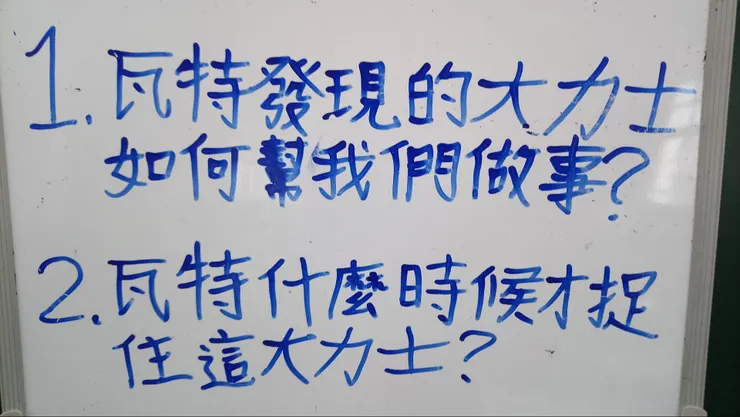 1. 瓦特發現的大力士
如何幫我們做事?
2. 瓦特什麼時候才捉
住這大力士?